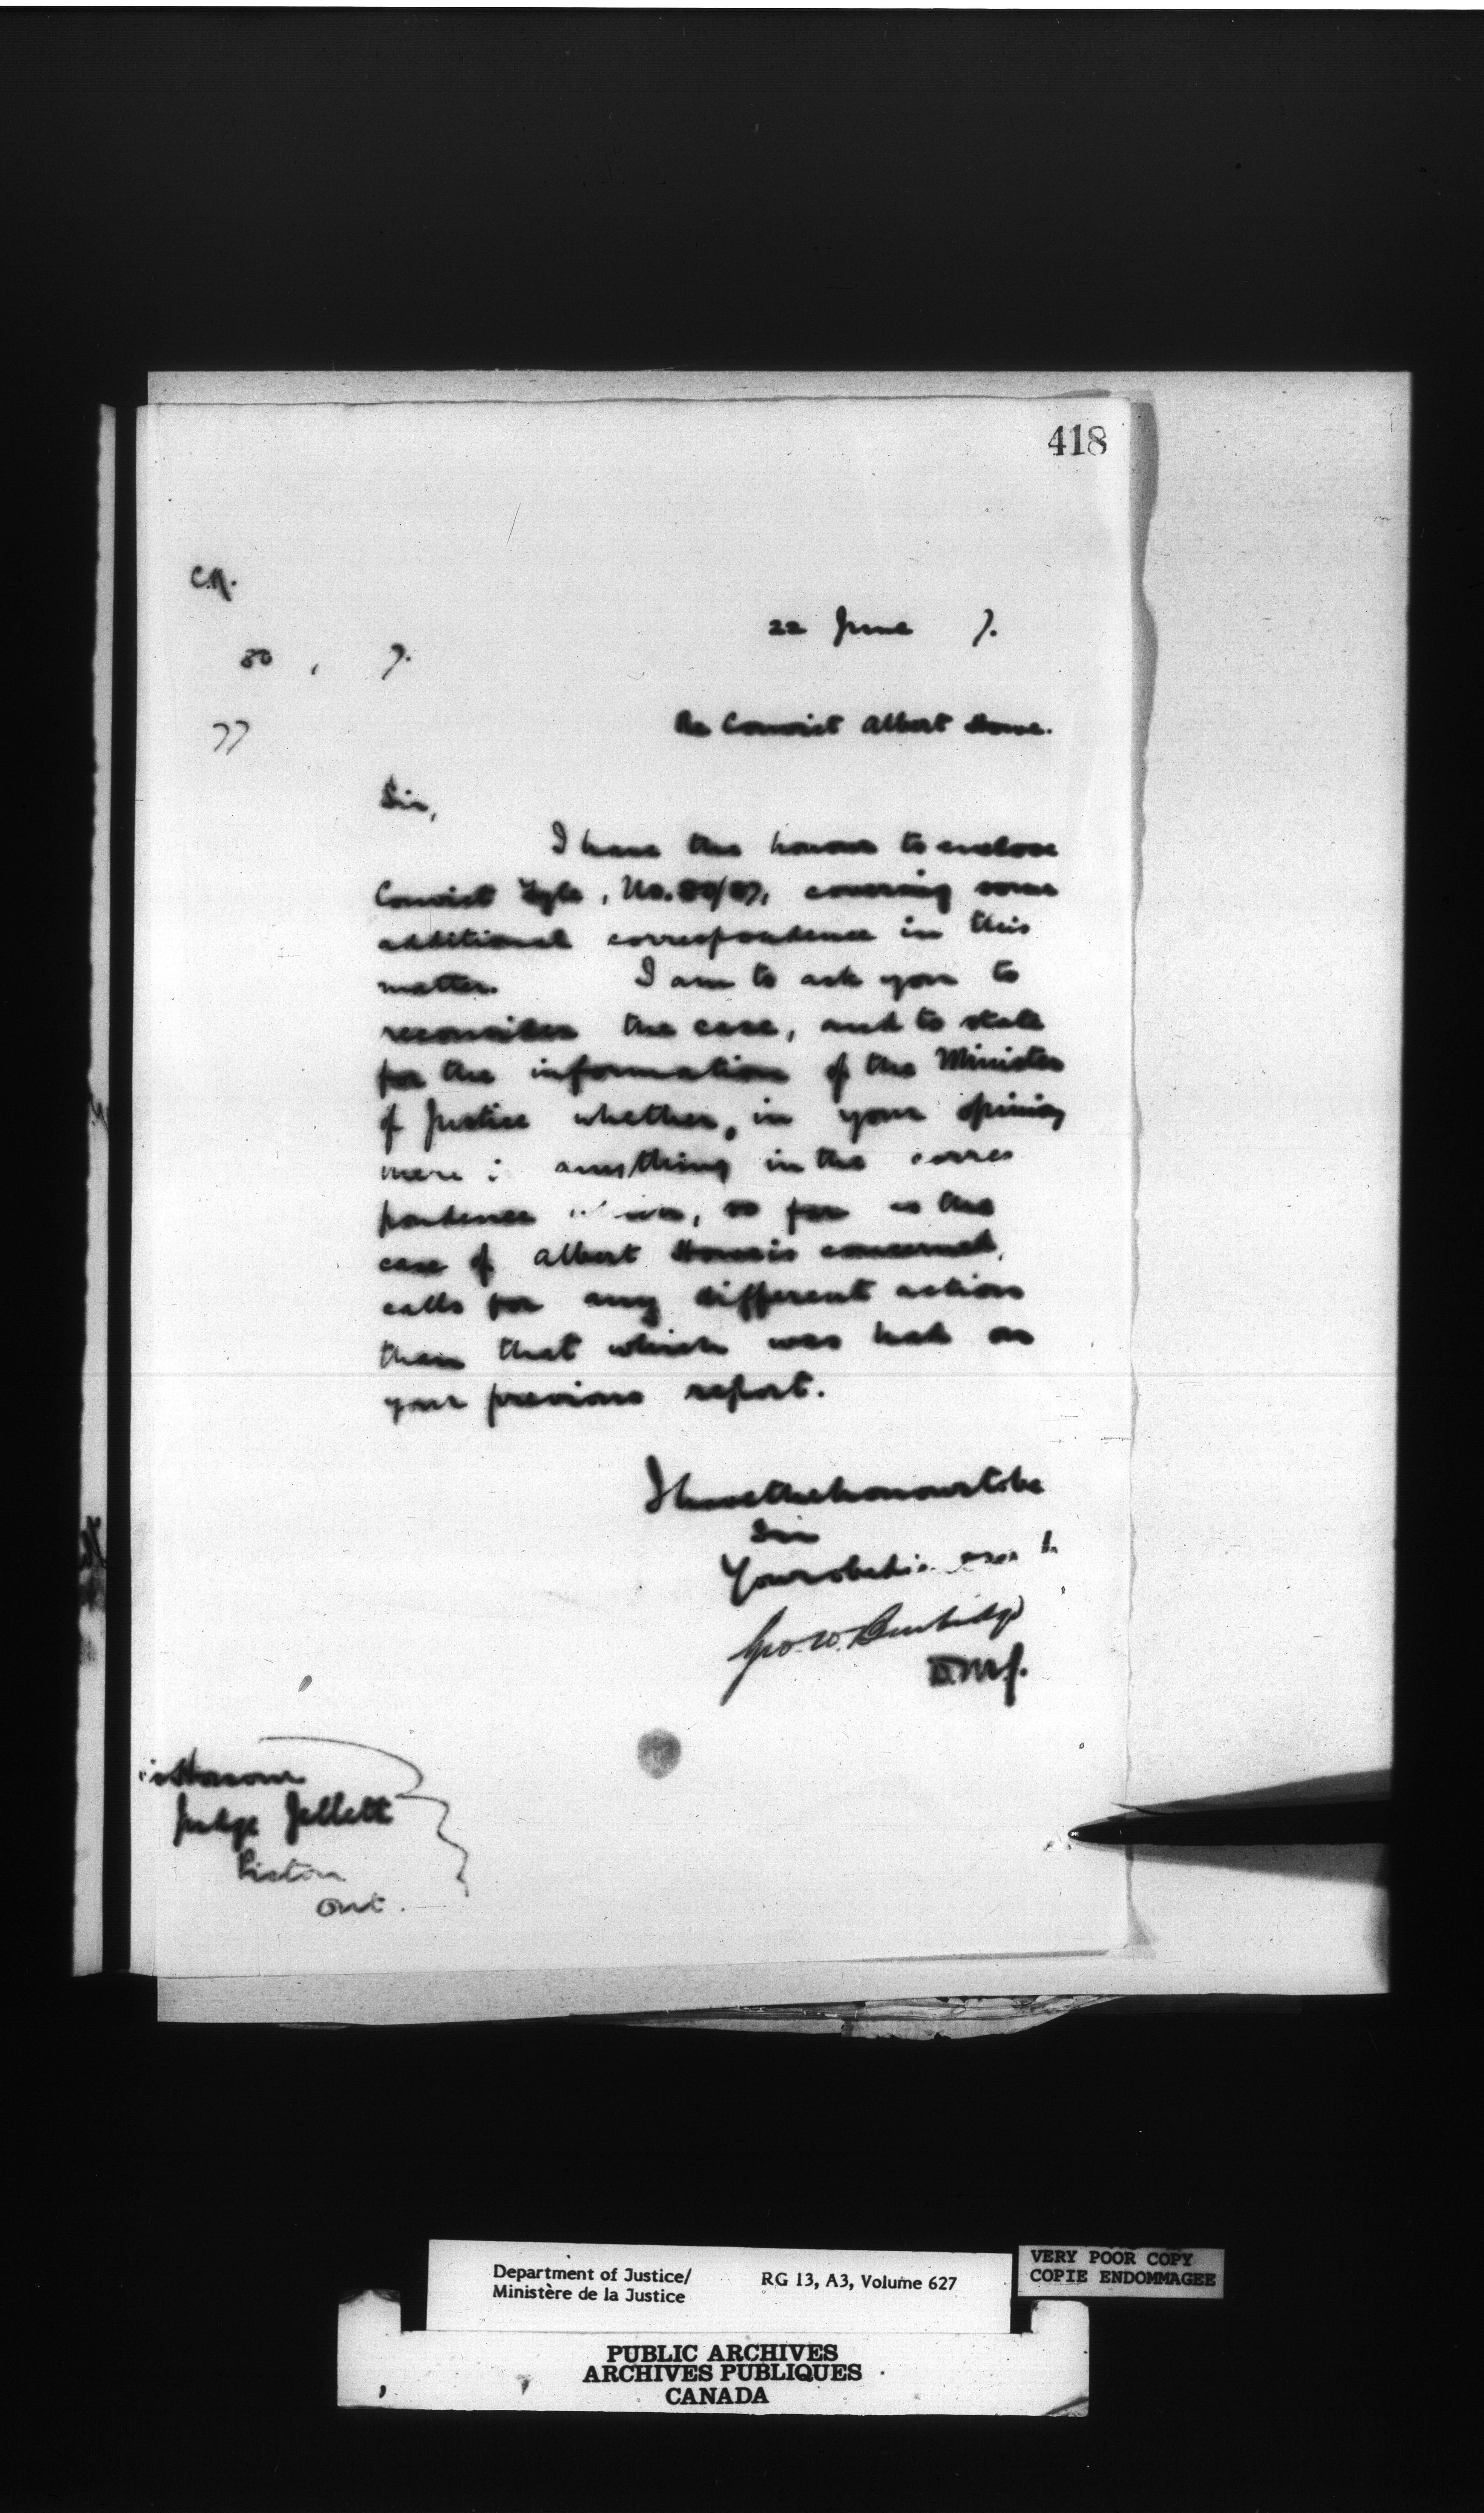 418
C.R.
22 June 7.
80, 7.
77
Re Convict Albert Howe.
Sir,
I have the honour to enclose
Convict Fyle, No. 80/87, covering some
additional correspondence in this
matter. I am to ask you to
reconsider the case, and to state
for the information of the Minister
of Justice whether, in your opinion
there is anything in the corres
pondence which, so far as the
case of Albert Howe is concerned,
calls for any different action
than that which was had on
your previous report.
I have the honour to be
Sir
Your obedient servant
Geo. W. Burbidge
D.M.J.
His Honour
Judge Jellett
Picton
Ont.
Department of Justice/
Ministère de la Justice
RG 13, A3, Volume 627
VERY POOR COPY
COPIE ENDOMMAGEE
PUBLIC ARCHIVES
ARCHIVES PUBLIQUES
CANADA